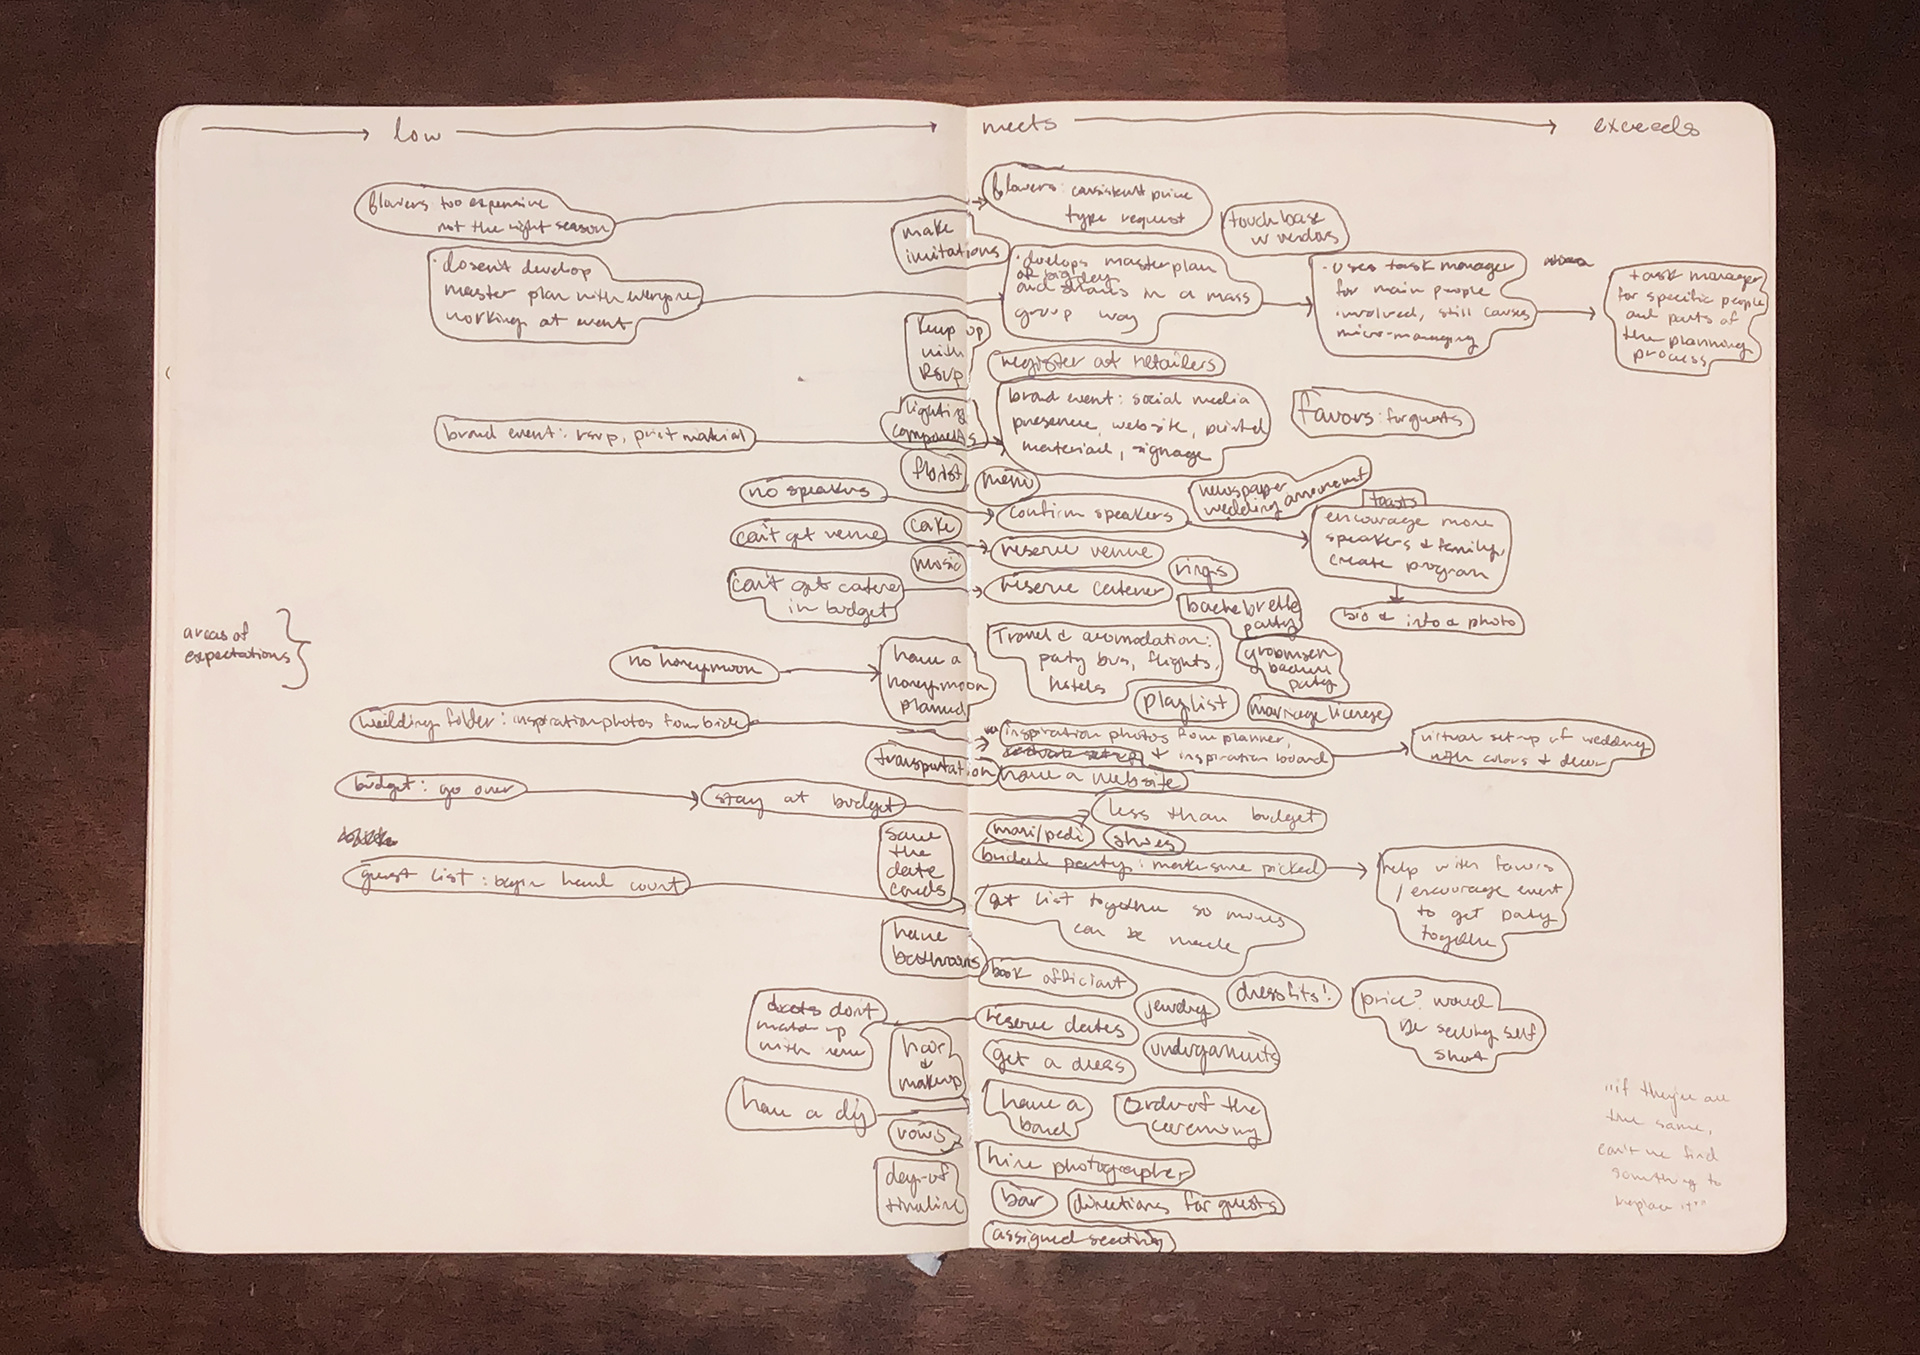 low
meets
exceeds
flowers too expensive
not the right season
flowers: consistent price
type request
touch base
w vendors
make
imitations
· dosent develop
master plan with everyone
working at event
· develops master plan
of big day
and shares in a mass
group way
· uses task manager
for main people
involved, still causes
micro-managing
task manager
for specific people
and parts of
the planning
process
keep up
with
rsvp
register at retailers
brand event: rsvp, print material
lighting
components
brand event: social media
presence, website, printed
material, signage
favors: for guests
florist
menu
newspaper
wedding
no speakers
confirm speakers
toasts
encourage more
speakers & family,
create program
bio & info & photo
can't get venue
cake
reserve venue
music
rings
can't get caterer
in budget
reserve caterer
bachelorette
party
areas of
expectations
no honeymoon
have a
honeymoon
planned
Travel & acomodation:
party bus, flights,
hotels
groomsen
party
playlist
marriage license
wedding folder: inspiration photos from bride
inspiration photos from planner,
& inspiration board
virtual set-up of wedding
with colors & decor
transportation
have a website
budget: go over
stay at budget
less than budget
save
the
date
cards
mani/pedi
shoes
bridal party: make sure picked
help with favors
/ encourage event
to get party
together
guest list: begin head count
get list together so moves
can be made
have
bathrooms
book officiant
jewelry
dress fits!
price? would
be selling self
short
dates don't
match up
with venue
reserve dates
hair
&
makeup
get a dress
undergarments
have a dj
have a
band
Order of the
ceremony
vows
hire photographer
day-of
timeline
bar
directions for guests
assigned seating
"if they're all
the same,
can't we find
something to
replace it"